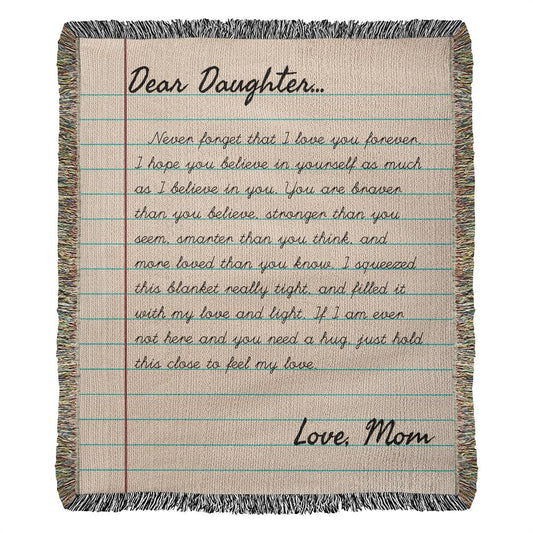 Dear Daughter...
Never forget that I love you forever.
I hope you believe in yourself as much
as I believe in you. You are braver
than you believe, stronger than you
seem, smarter than you think, and
more loved than you know. I squeezed
this blanket really tight, and filled it
with my love and light. If I am ever
not here and you need a hug, just hold
this close to feel my love.
Love, Mom